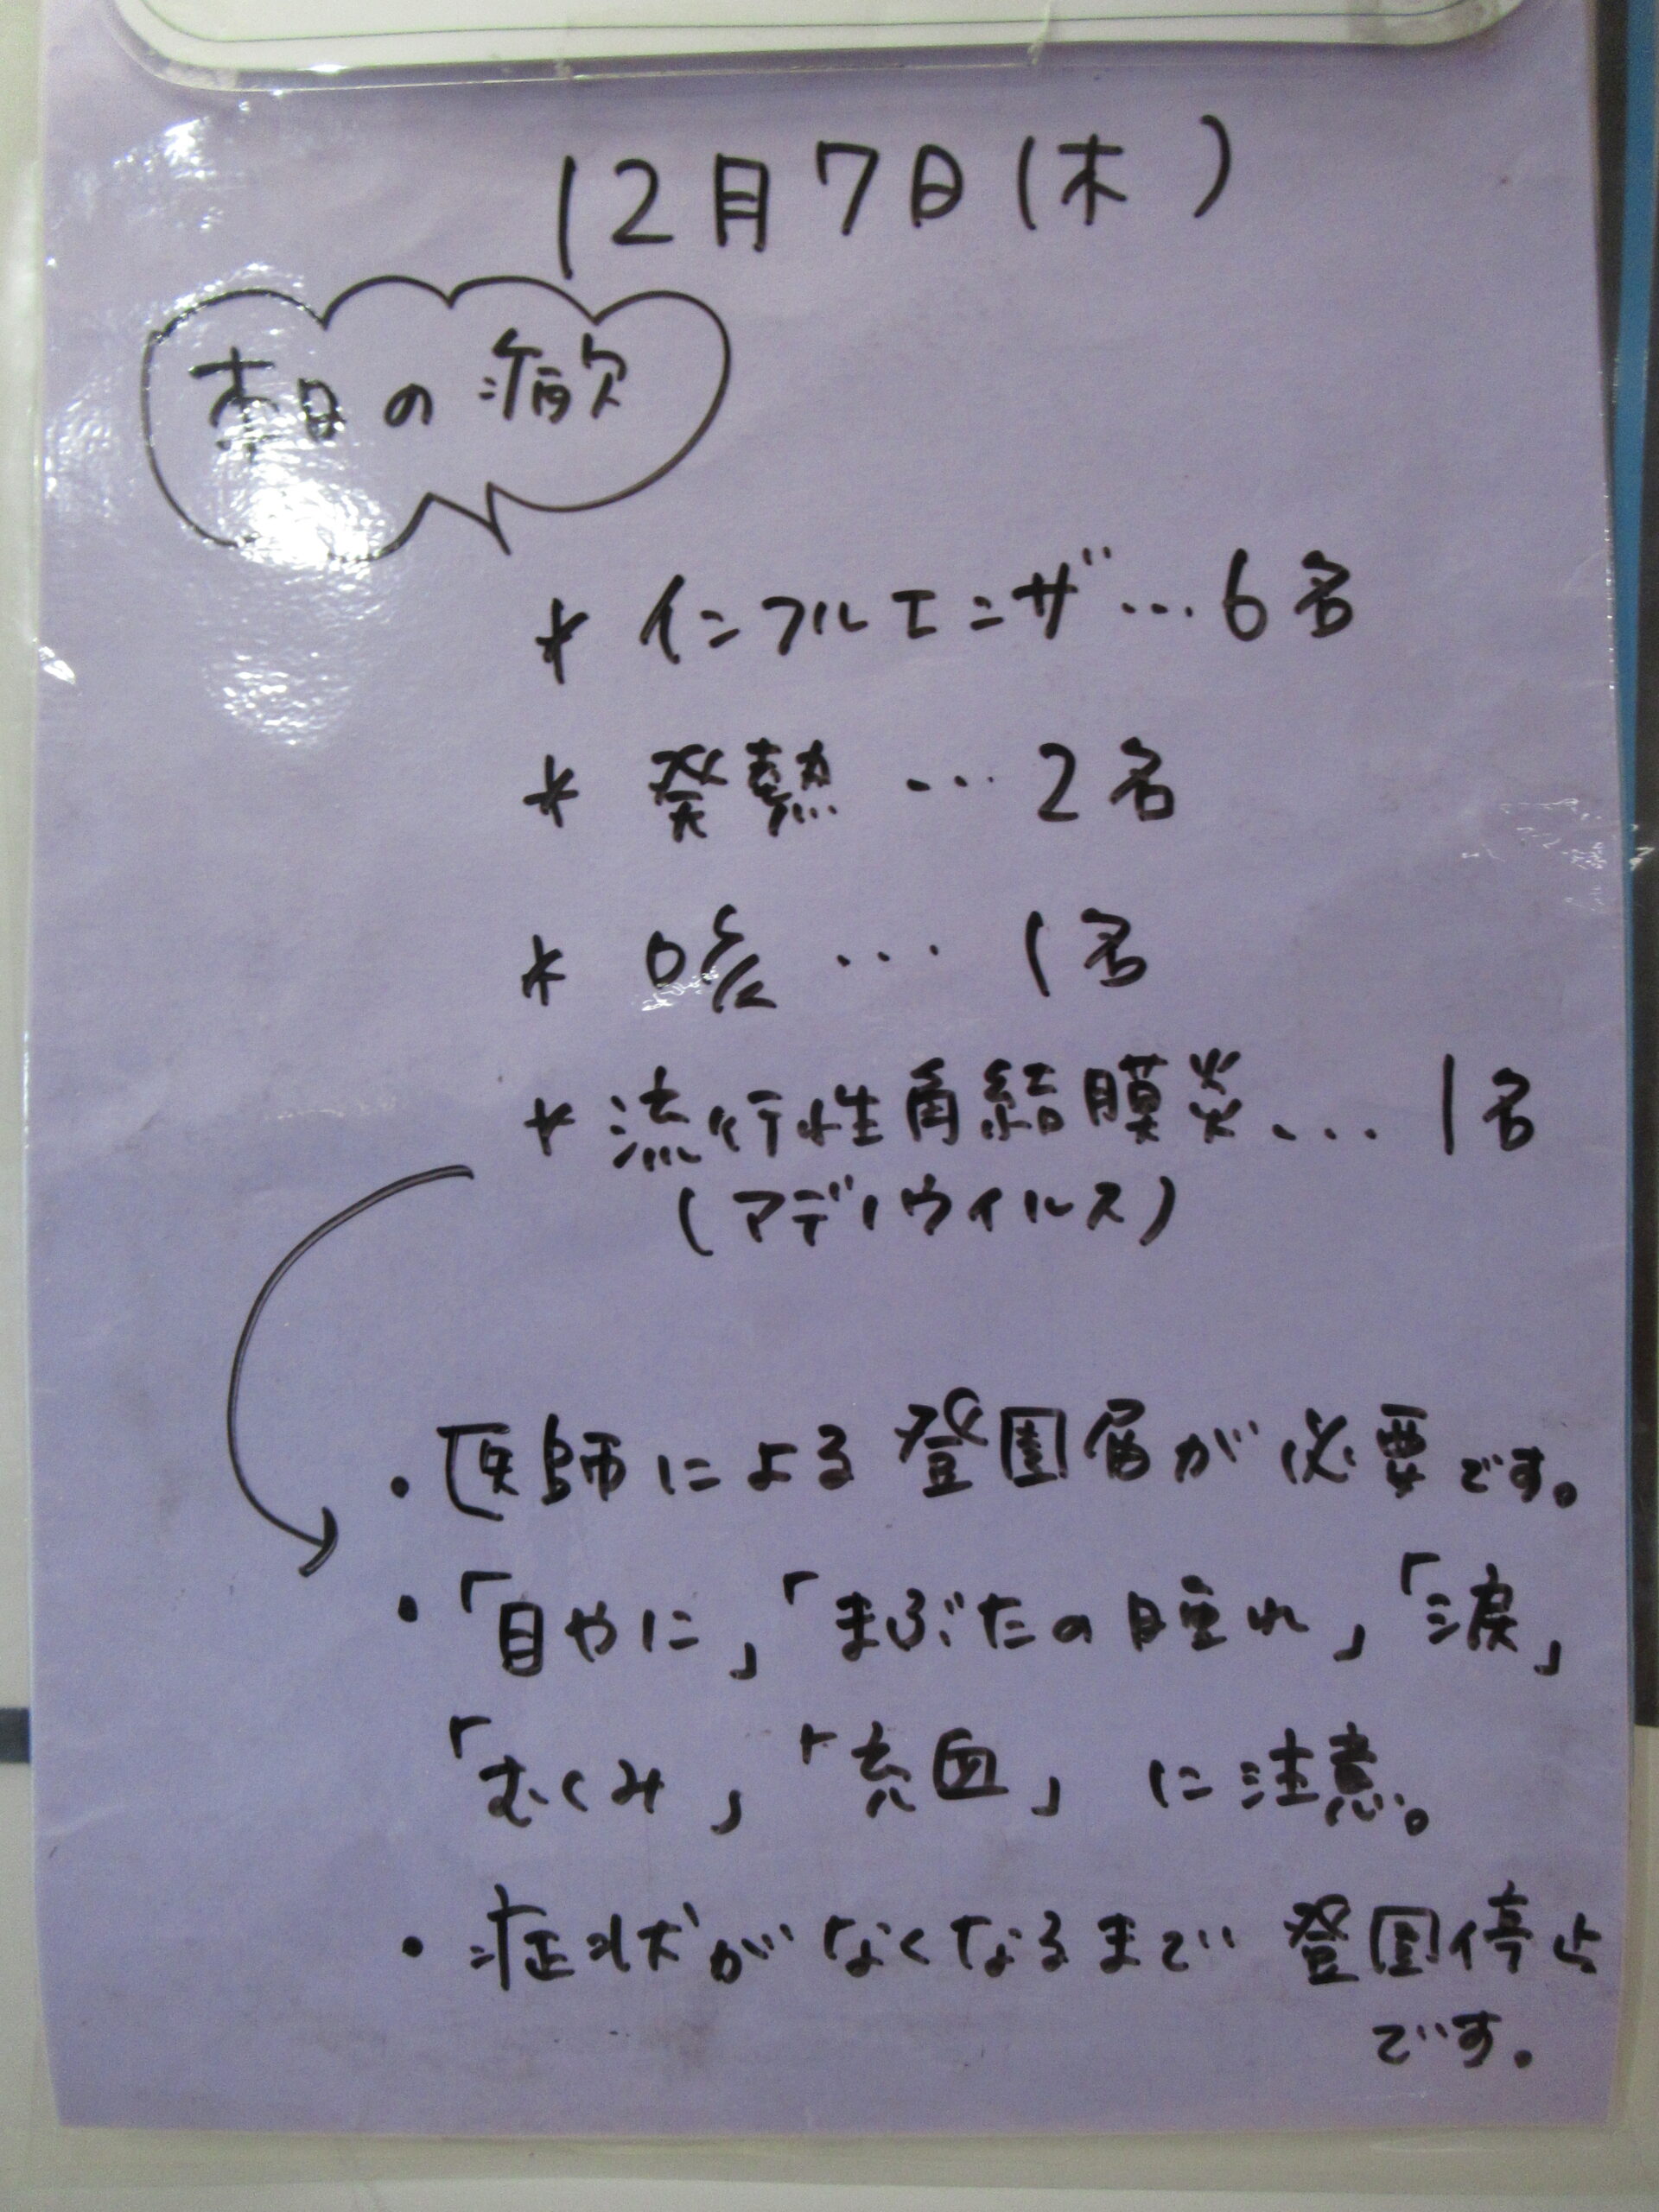 12月7日(木)
本日の病欠
* インフルエンザ…6名
* 発熱…2名
* 咳…1名
* 流行性角結膜炎…1名
(アデノウイルス)
・医師による登園届が必要です。
・「目やに」「まぶたの腫れ」「涙」
「むくみ」「充血」に注意。
・症状がなくなるまで登園停止
です。